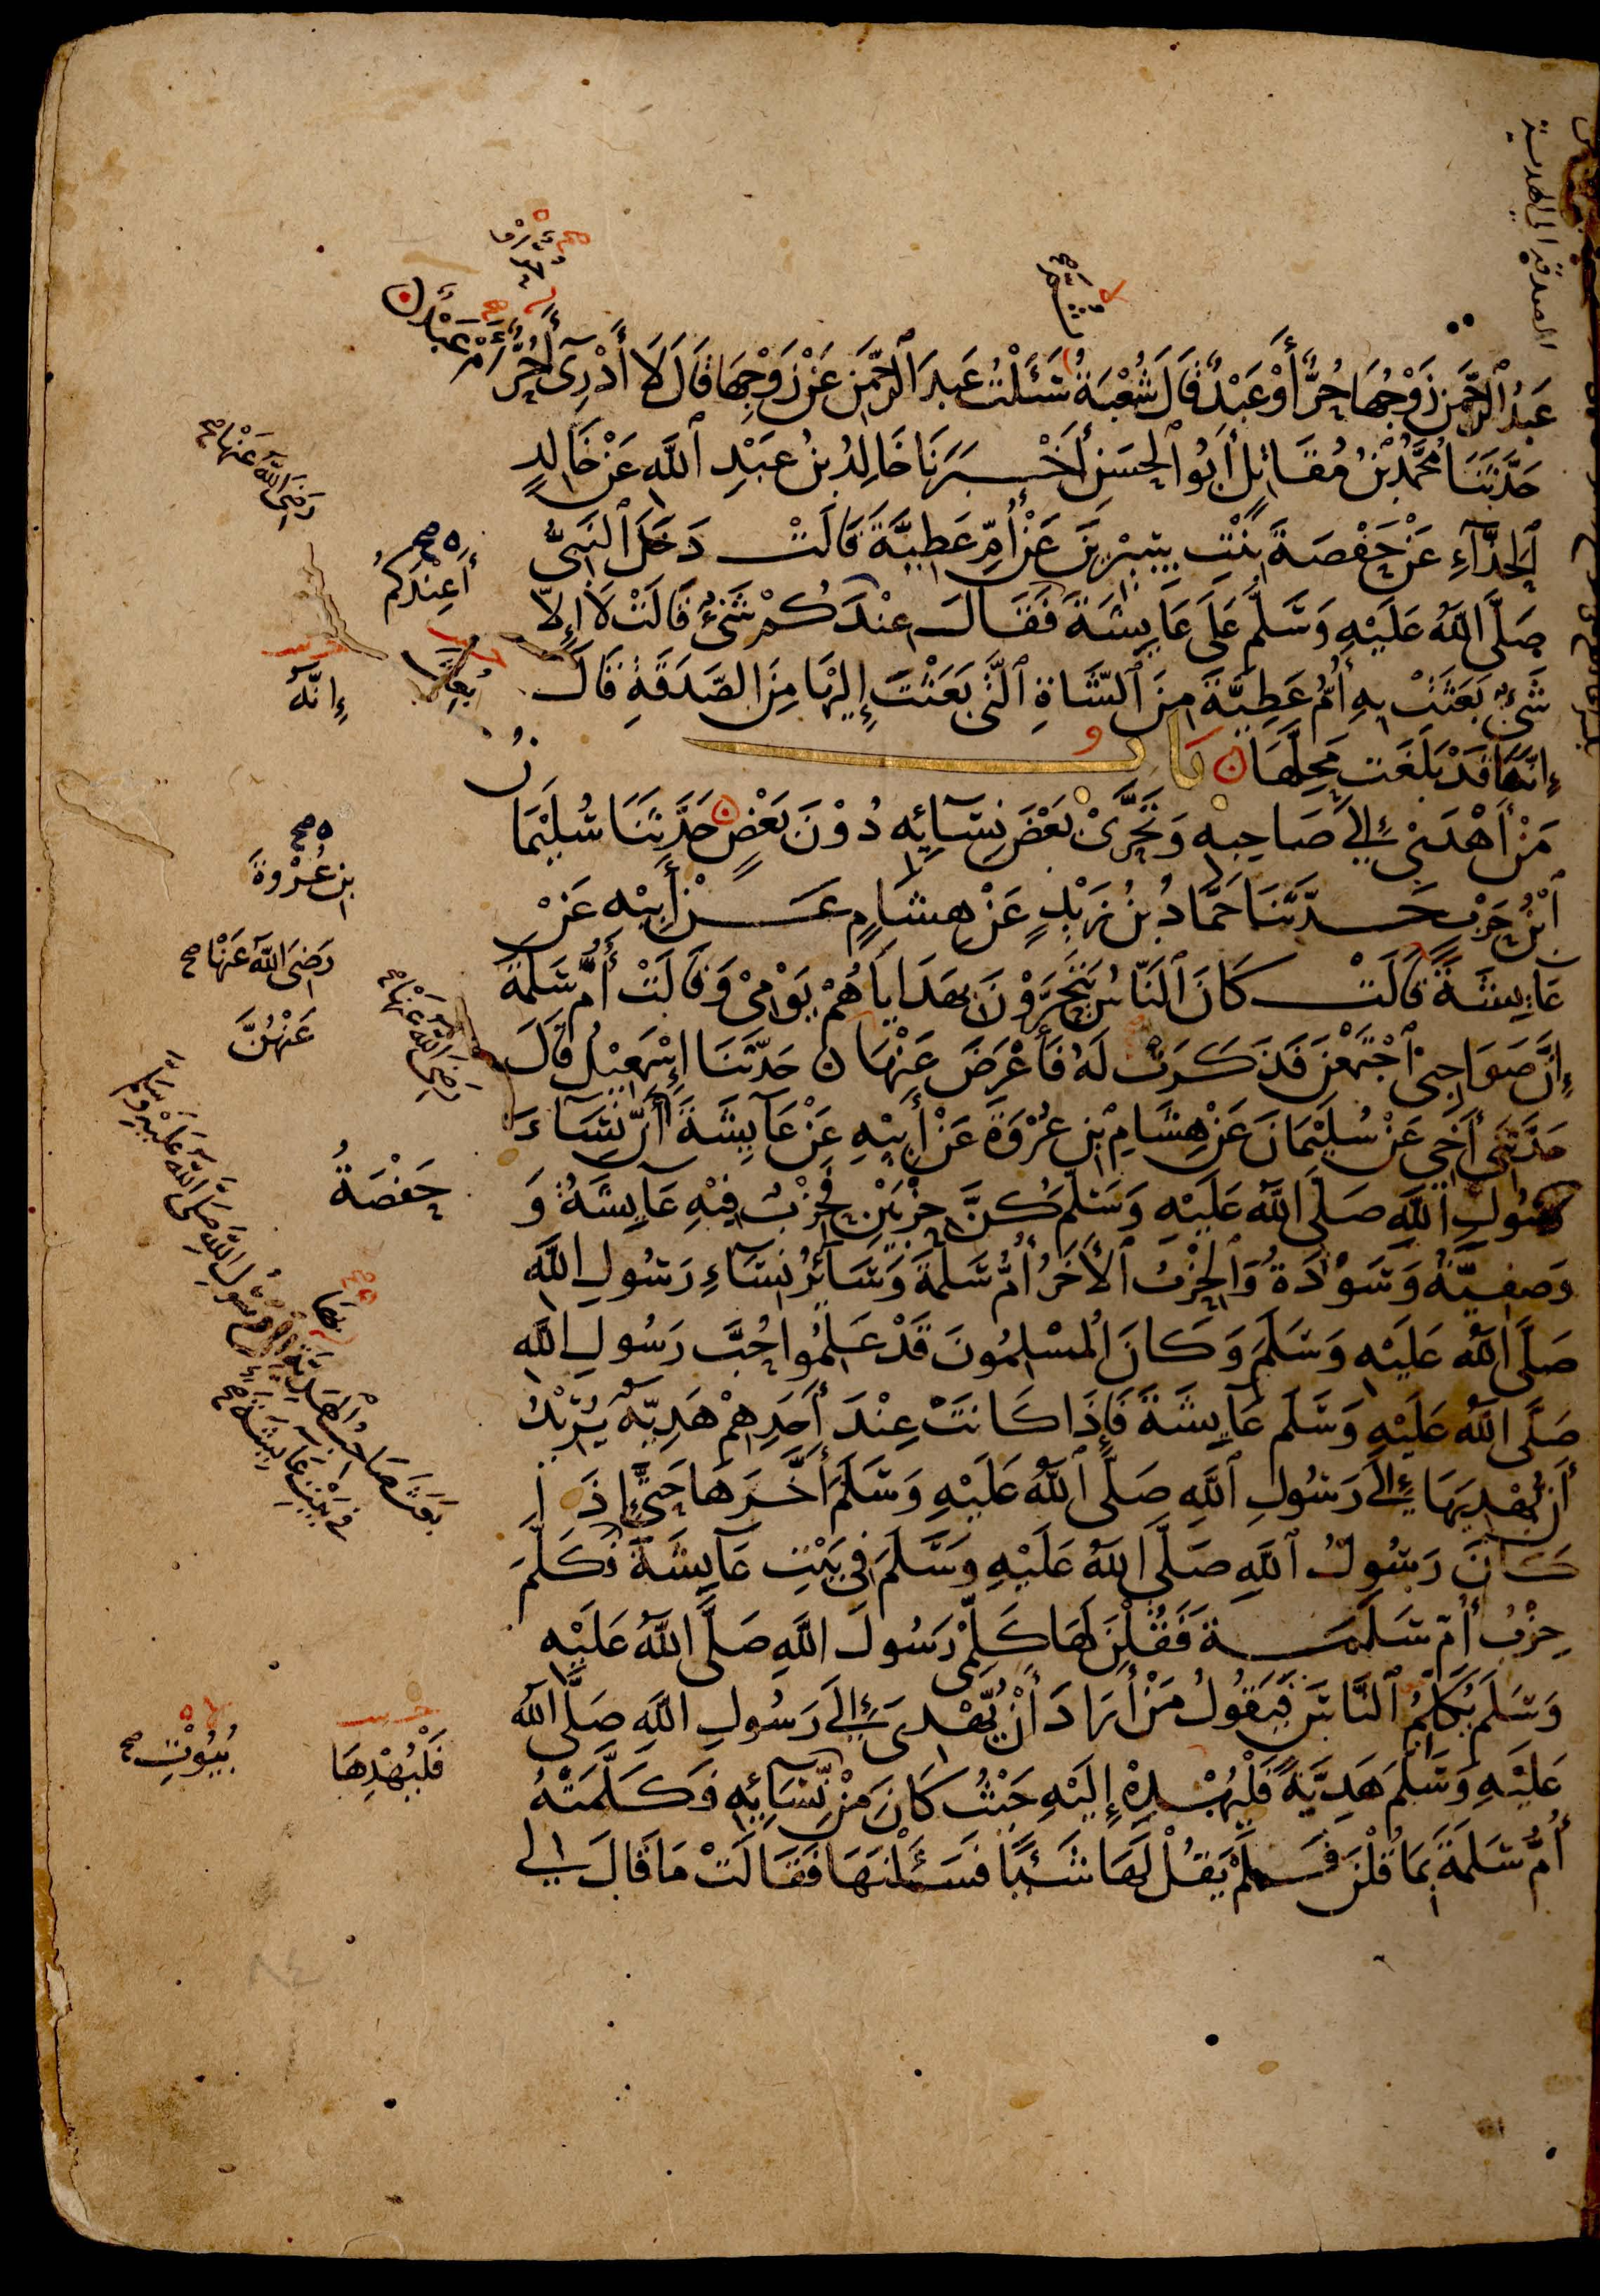 عَبْدُ الرَّحْمٰنِ زَوْجُهَا حُرٌّ أَوْ عَبْدٌ قَالَ شُعْبَةُ سَئَلْتُ عَبْدَ الرَّحْمٰنِ عَنْ زَوْجِهَا قَالَ لَا أَدْرِىٓ أَحُرٌّ أَمْ عَبْدٌ
حَدَّثَنَا مُحَمَّدُ بْنُ مُقَاتِلٍ أَبُو الْحَسَنِ أَخْبَرَنَا خَالِدُ بْنُ عَبْدِ اللّٰهِ عَنْ خَالِدٍ
الْحَذَّآءِ عَنْ حَفْصَةَ بِنْتِ سِيْرِيْنَ عَنْ أُمِّ عَطِيَّةَ قَالَتْ دَخَلَ النَّبِىُّ
صَلَّى اللّٰهُ عَلَيْهِ وَسَلَّمَ عَلَى عَايِشَةَ فَقَالَ عِنْدَكُمْ شَىْءٌ قَالَتْ لَا إِلَّا
شَىْءٌ بَعَثَتْ بِهِ أُمُّ عَطِيَّةَ مِنَ الشَّاةِ الَّتِى بَعَثْتَ إِلَيْهَا مِنَ الصَّدَقَةِ قَالَ
إِنَّهَا قَدْ بَلَغَتْ مَحِلَّهَا بَابُ
مَنْ أَهْدَىٰ إِلَىٰ صَاحِبِهِ وَتَحَرَّىٰ بَعْضَ نِسَآئِهِ دُوْنَ بَعْضٍ حَدَّثَنَا سُلَيْمَانُ
ابْنُ حَرْبٍ حَدَّثَنَا حَمَّادُ بْنُ زَيْدٍ عَنْ هِشَامٍ عَنْ أَبِيْهِ عَنْ
عَايِشَةَ قَالَتْ كَانَ النَّاسُ يَتَحَرَّوْنَ بِهَدَايَاهُمْ يَوْمِىْ وَقَالَتْ أُمُّ سَلَمَةَ
إِنَّ صَوَاحِبِى اجْتَمَعْنَ فَذَكَرَتْ لَهُ فَأَعْرَضَ عَنْهَا حَدَّثَنَا إِسْمٰعِيْلُ قَالَ
حَدَّثَنِىٓ أَخِى عَنْ سُلَيْمَانَ عَنْ هِشَامِ بْنِ عُرْوَةَ عَنْ أَبِيْهِ عَنْ عَآيِشَةَ أَنَّ نِسَآءَ
رَسُولِ اللّٰهِ صَلَّى اللّٰهُ عَلَيْهِ وَسَلَّمَ كُنَّ حِزْبَيْنِ فَحِزْبٌ فِيْهِ عَآيِشَةُ وَ
وَصَفِيَّةُ وَسَوْدَةُ وَالْحِزْبُ الْأٰخَرُ أُمُّ سَلَمَةَ وَسَآئِرُ نِسَآءِ رَسُولِ اللّٰهِ
صَلَّى اللّٰهُ عَلَيْهِ وَسَلَّمَ وَكَانَ الْمُسْلِمُونَ قَدْ عَلِمُوا حُبَّ رَسُولِ اللّٰهِ
صَلَّى اللّٰهُ عَلَيْهِ وَسَلَّمَ عَآيِشَةَ فَإِذَا كَانَتْ عِنْدَ أَحَدِهِمْ هَدِيَّةٌ يُرِيْدُ
أَنْ يُهْدِيَهَا إِلَىٰ رَسُولِ اللّٰهِ صَلَّى اللّٰهُ عَلَيْهِ وَسَلَّمَ أَخَّرَهَا حَتَّىٓ إِذَا
كَانَ رَسُولُ اللّٰهِ صَلَّى اللّٰهُ عَلَيْهِ وَسَلَّمَ فِى بَيْتِ عَآيِشَةَ فَكَلَّمَ
حِزْبُ أُمِّ سَلَمَةَ فَقُلْنَ لَهَا كَلِّمِىْ رَسُولَ اللّٰهِ صَلَّى اللّٰهُ عَلَيْهِ
وَسَلَّمَ يُكَلِّمُ النَّاسَ فَيَقُولُ مَنْ أَرَادَ أَنْ يُّهْدِىَ إِلَىٰ رَسُولِ اللّٰهِ صَلَّى اللّٰهُ
عَلَيْهِ وَسَلَّمَ هَدِيَّةً فَلْيُهْدِهْ إِلَيْهِ حَيْثُ كَانَ مِنْ نِّسَآئِهِ فَكَلَّمَتْهُ
أُمُّ سَلَمَةَ بِمَا قُلْنَ فَلَمْ يَقُلْ لَهَا شَيْئًا فَسَئَلْنَهَا فَقَالَتْ مَا قَالَ لِى
رَضِىَ اللّٰهُ عَنْهَا صح
أَعِنْدَكُمْ
إِنَّهُ
بْنِ عُرْوَةَ
رَضِىَ اللّٰهُ عَنْهَا صح
رَضِىَ اللّٰهُ عَنْهَا صح
عَنْهُنَّ
حَفْصَةُ
بَعَثَ صَاحِبُ الْهَدِيَّةِ بِهَا إِلَىٰ رَسُولِ اللّٰهِ صَلَّى اللّٰهُ عَلَيْهِ وَسَلَّمَ
فِى بَيْتِ عَآيِشَةَ صح
فَلْيُهْدِهَا
بُيُوْتِ صح